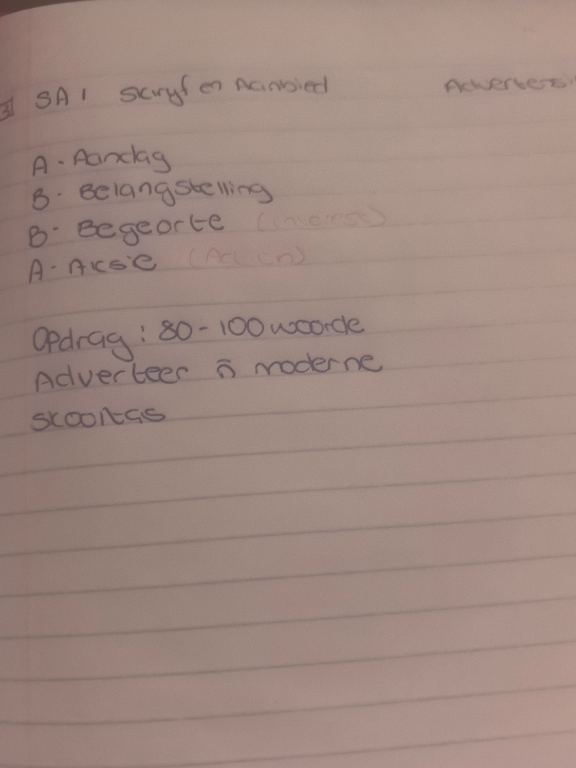 SA 1 Skryf en Aanbied
A - Aandag
B - Belangstelling
B - Begeorte (Interest)
A - Aksie (Action)
Opdrag : 80 - 100 woorde
Adverteer ñ moderne
skooltas